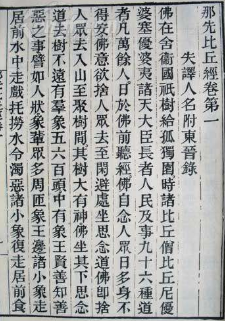 那先比丘經卷第一
失譯人名附東晉錄
佛在舍衛國祇樹給孤獨園時諸比丘僧比丘尼優
婆塞優婆夷諸天大臣長者人民及事九十六種道
者凡萬餘人日於佛前聽經佛自念人眾日多身不
得安佛意欲捨人眾去至閑避處坐思念道佛即捨
人眾去入山至叢樹間其樹大有神佛坐其下思念
道去樹不遠有羣象五六百頭中有象王賢善知善
惡之事譬如人狀象輩眾多周匝象王邊諸小象走
居前水中走戲撓撈水令濁惡諸小象復走居前食